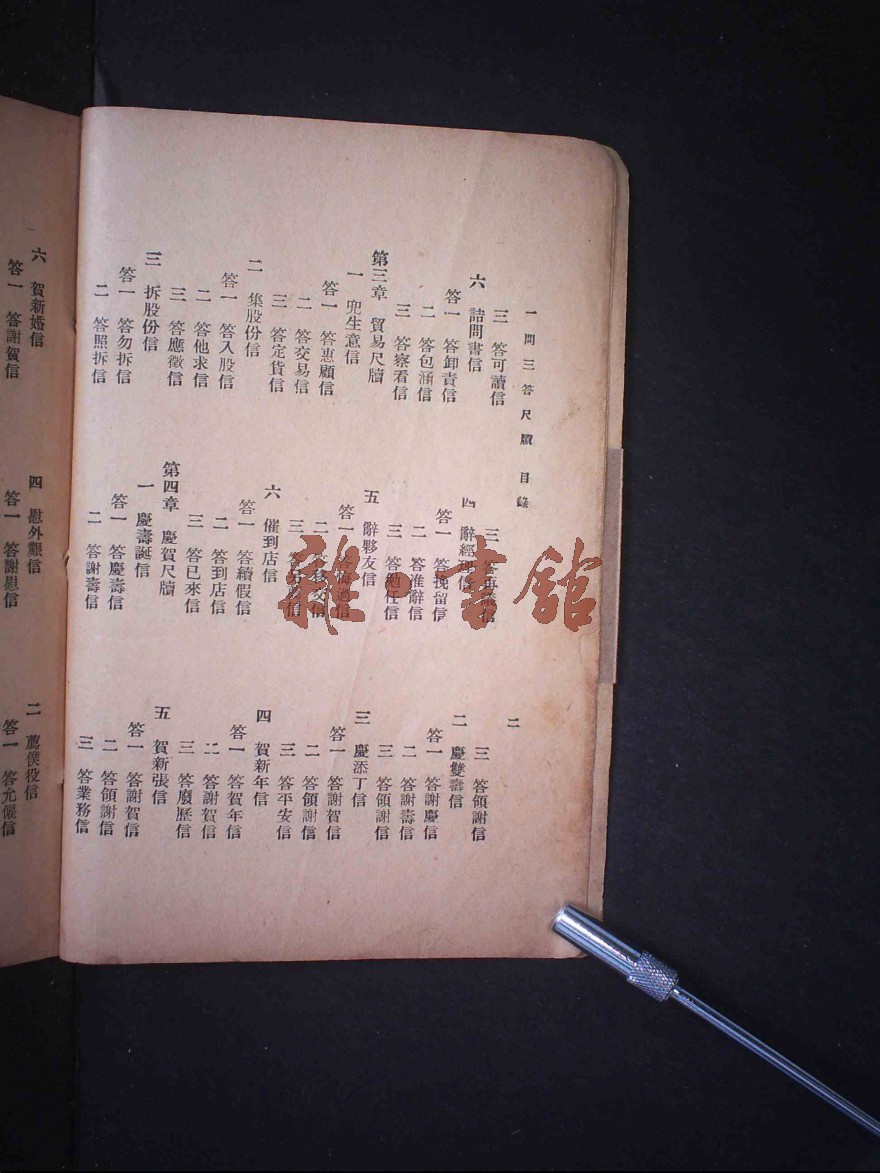 一問三答尺牘 目錄
二
三 答可讀信
六 詰問書信
答一 答卸責信
二 答包涵信
三 答察看信
第三章 貿易尺牘
一 兜生意信
答一 答惠顧信
二 答交易信
三 答定貨信
二 集股份信
答一 答入股信
二 答他求信
三 答應徵信
三 拆股份信
答一 答勿拆信
二 答照拆信
四 辭經理信
答一 答挽留信
二 答准辭信
三 答勉任信
五 辭夥友信
答一
二 答移交信
三
六 催到店信
答一 答續假信
二 答到店信
三 答已來信
第四章 慶賀尺牘
一 慶壽誕信
答一 答慶壽信
二 答謝壽信
三 答領謝信
二 慶雙壽信
答一 答謝慶信
二 答謝壽信
三 答領謝信
三 慶添丁信
答一 答謝賀信
二 答領謝信
三 答平安信
四 賀新年信
答一 答賀年信
二 答謝賀信
三 答廢歷信
五 賀新張信
答一 答謝賀信
二 答領謝信
三 答業務信
六 賀新婚信
答一 答謝賀信
四 慰外艱信
答一 答謝慰信
二 薦僕役信
答一 答允僱信
雜書館